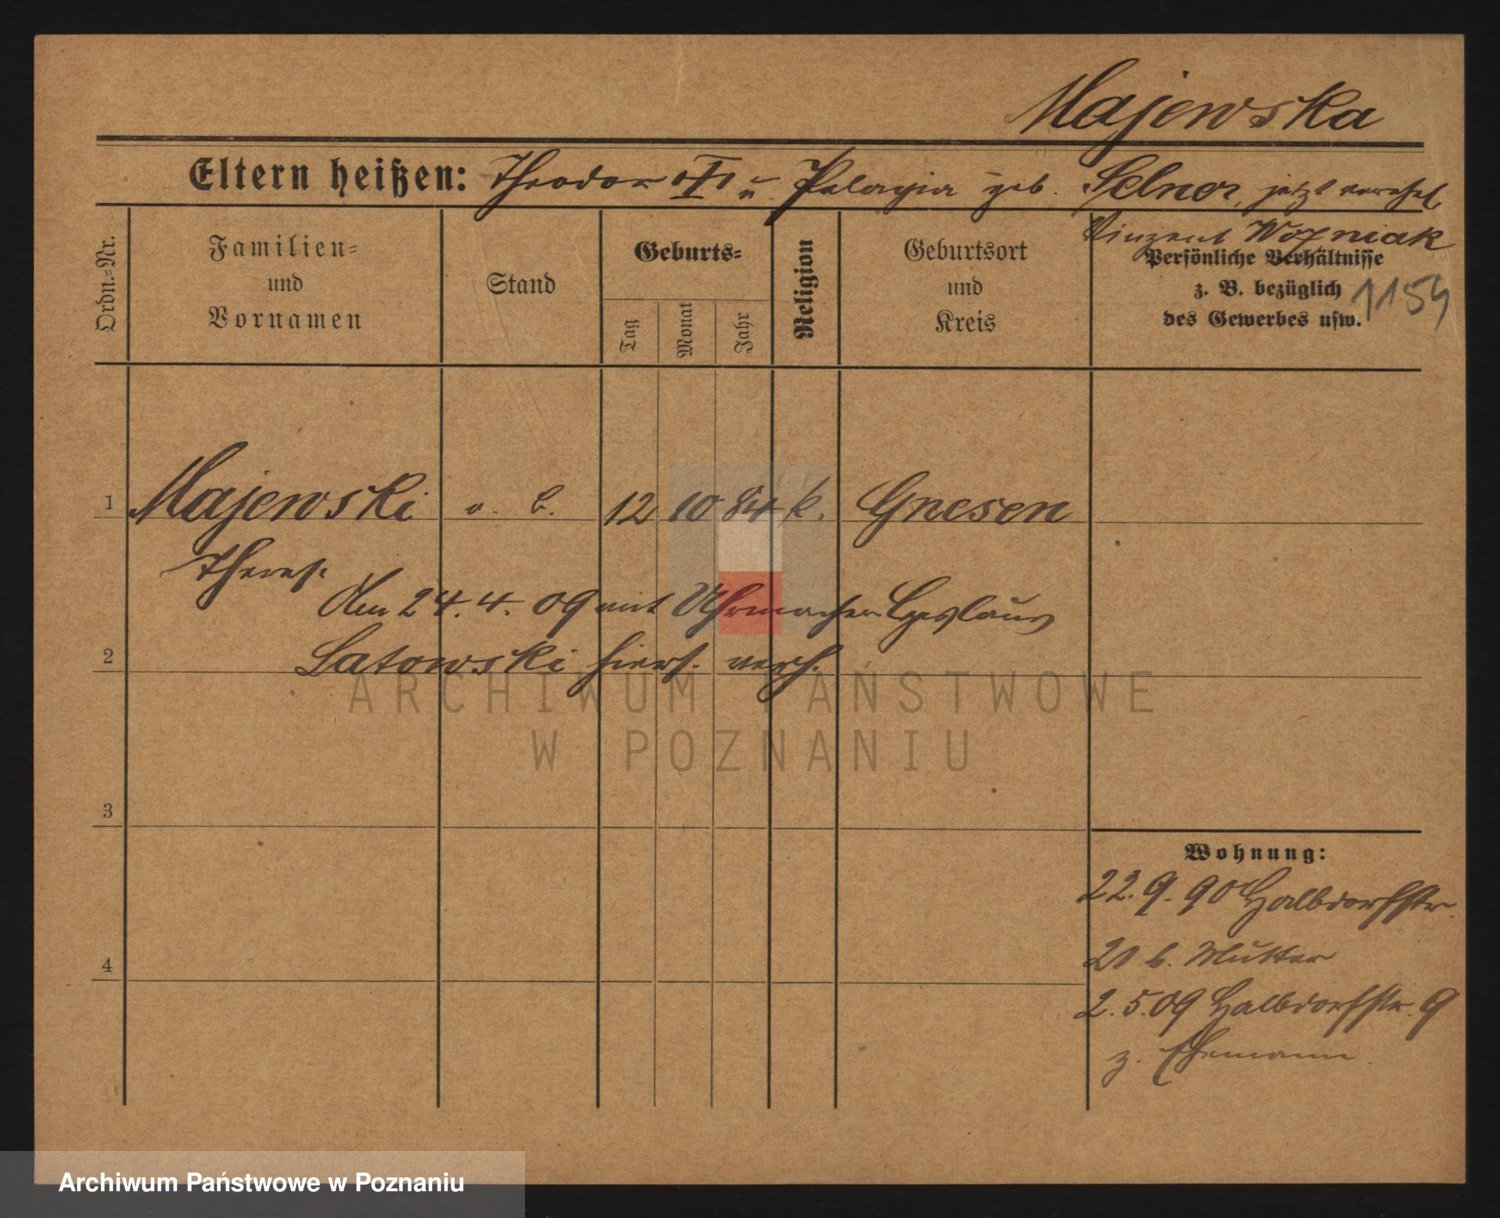 Majewska
Eltern heißen: Theodor u. Pelagia geb. Selnor, jetzt verehel.
Vinzent Wozniak
Ordn.-Nr.
Familien-
und
Vornamen
Stand
Geburts-
Tag
Monat
Jahr
Religion
Geburtsort
und
Kreis
Persönliche Verhältnisse
z. B. bezüglich
des Gewerbes usw.
1154
1 Majewski o. B. 12 10 84 k. Gnesen
Theres.
Am 24.4.09 mit Uhrmacher Ceslaus
2 Latowski hiers. verh.
3
4
Wohnung:
22.9.90 Halbdorfstr.
21 b. Mutter
2.5.09 Halbdorfstr. 9
z. Ehemann.
ARCHIWUM PAŃSTWOWE
W POZNANIU
Archiwum Państwowe w Poznaniu